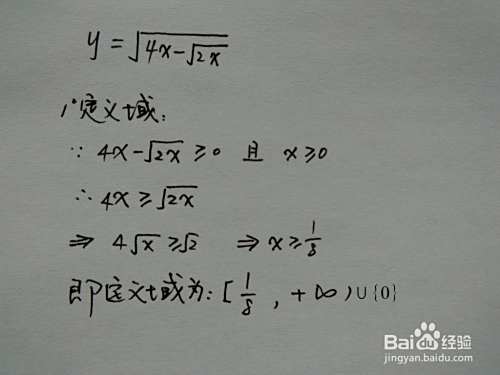 y = √(4x-√(2x))
1°定义域:
∵ 4x-√(2x) ≥ 0 且 x ≥ 0
∴ 4x ≥ √(2x)
⇒ 4√x ≥ √2 ⇒ x ≥ 1/8
即定义域为: [1/8, +∞)∪{0}
Bai du 经验
jingyan.baidu.com